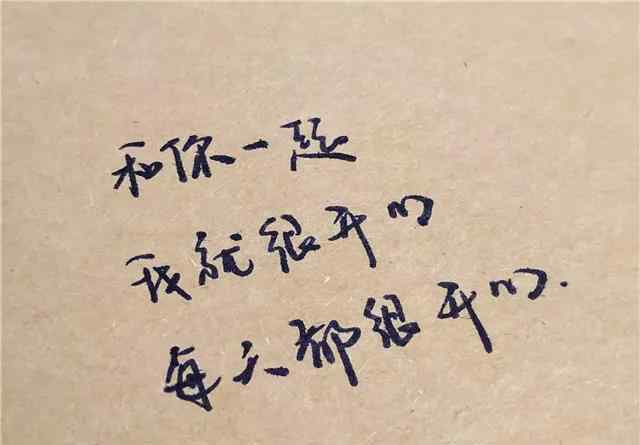 和你一起
我就很开心
每天都很开心.